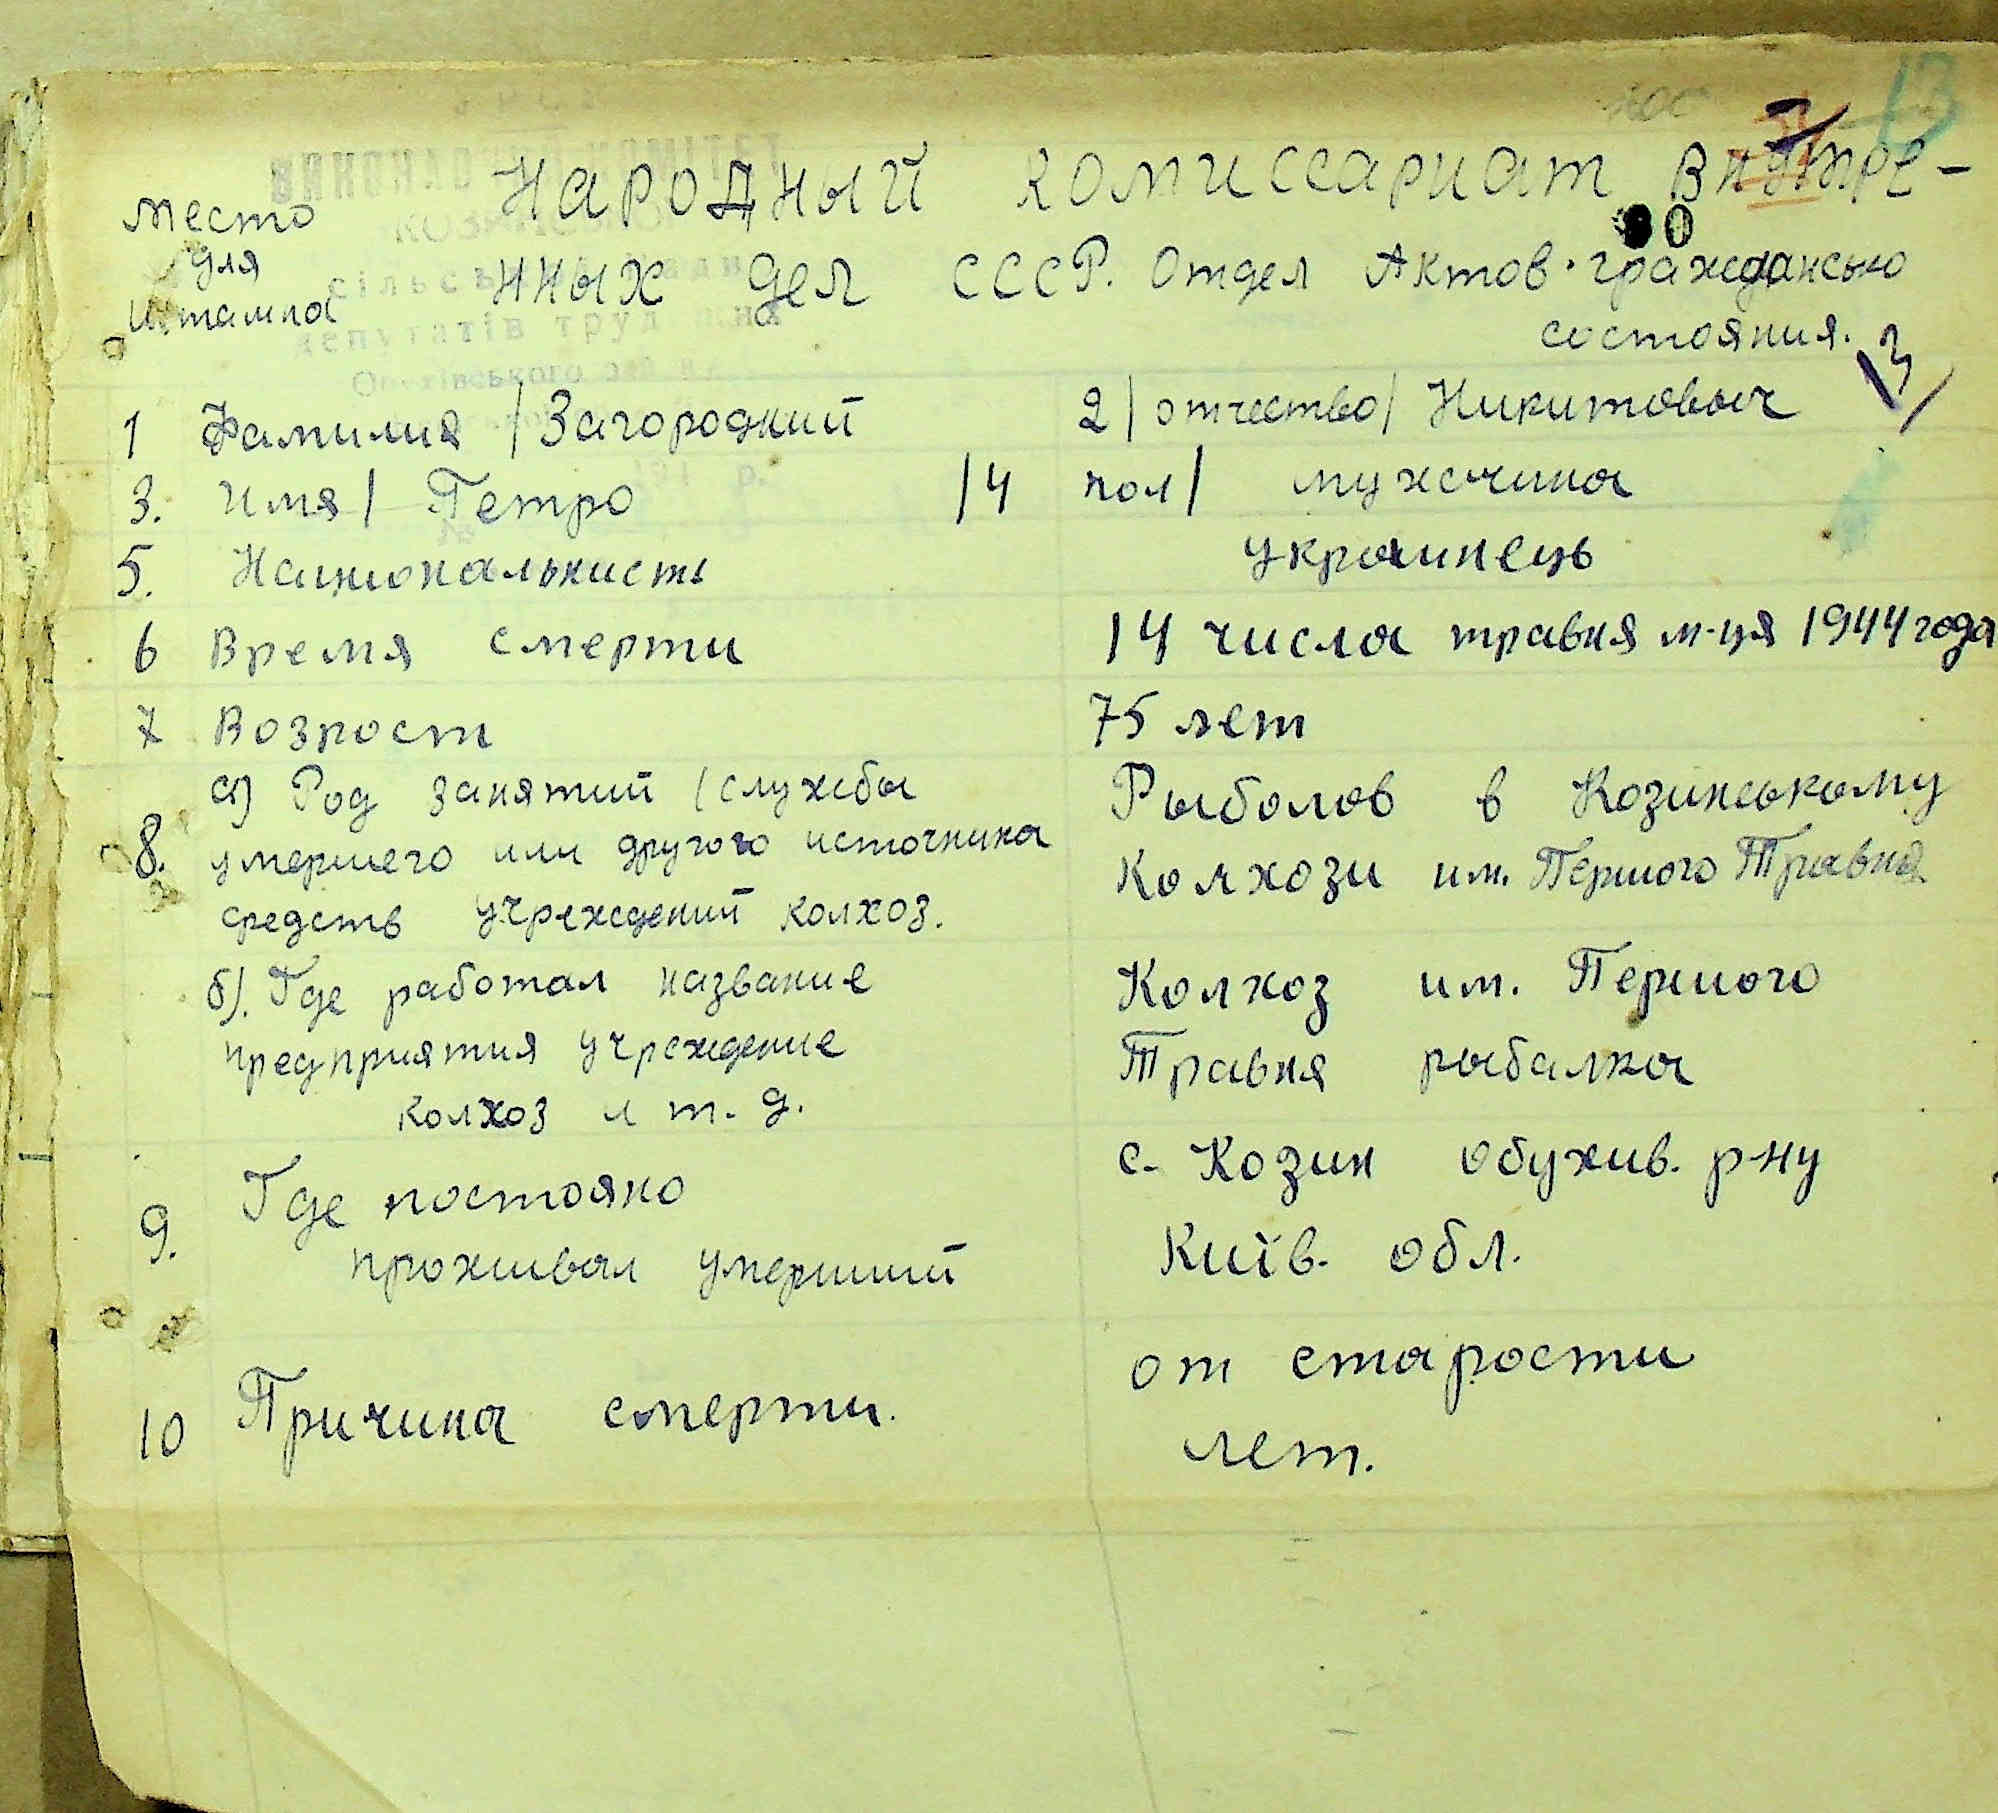 13
Место Народный комиссариат внутре-
для
штампа нных дел СССР. Отдел Актов граждансько
состояния.
13
1 Фамилия / Загородний 2/ отчество/ Никитовыч
3. Имя/ Петро /4 пол/ мужчина
5. Национальнисть украинець
6 Время смерти 14 числа травня м-ця 1944 года
7 Возрост 75 лет
а) Род занятий /службы Рыболов в Козинському
8. умершего или другого источника Колхози им. Першого Травня
средств учреждений колхоз.
б). Где работал название Колхоз им. Першого
предприятия учреждение Травня рыбалка
колхоз и т. д.
9. Где постояно с. Козин Обухив. р-ну
проживал умерший Київ. обл.
10 Причина смерти. от старости
лет.